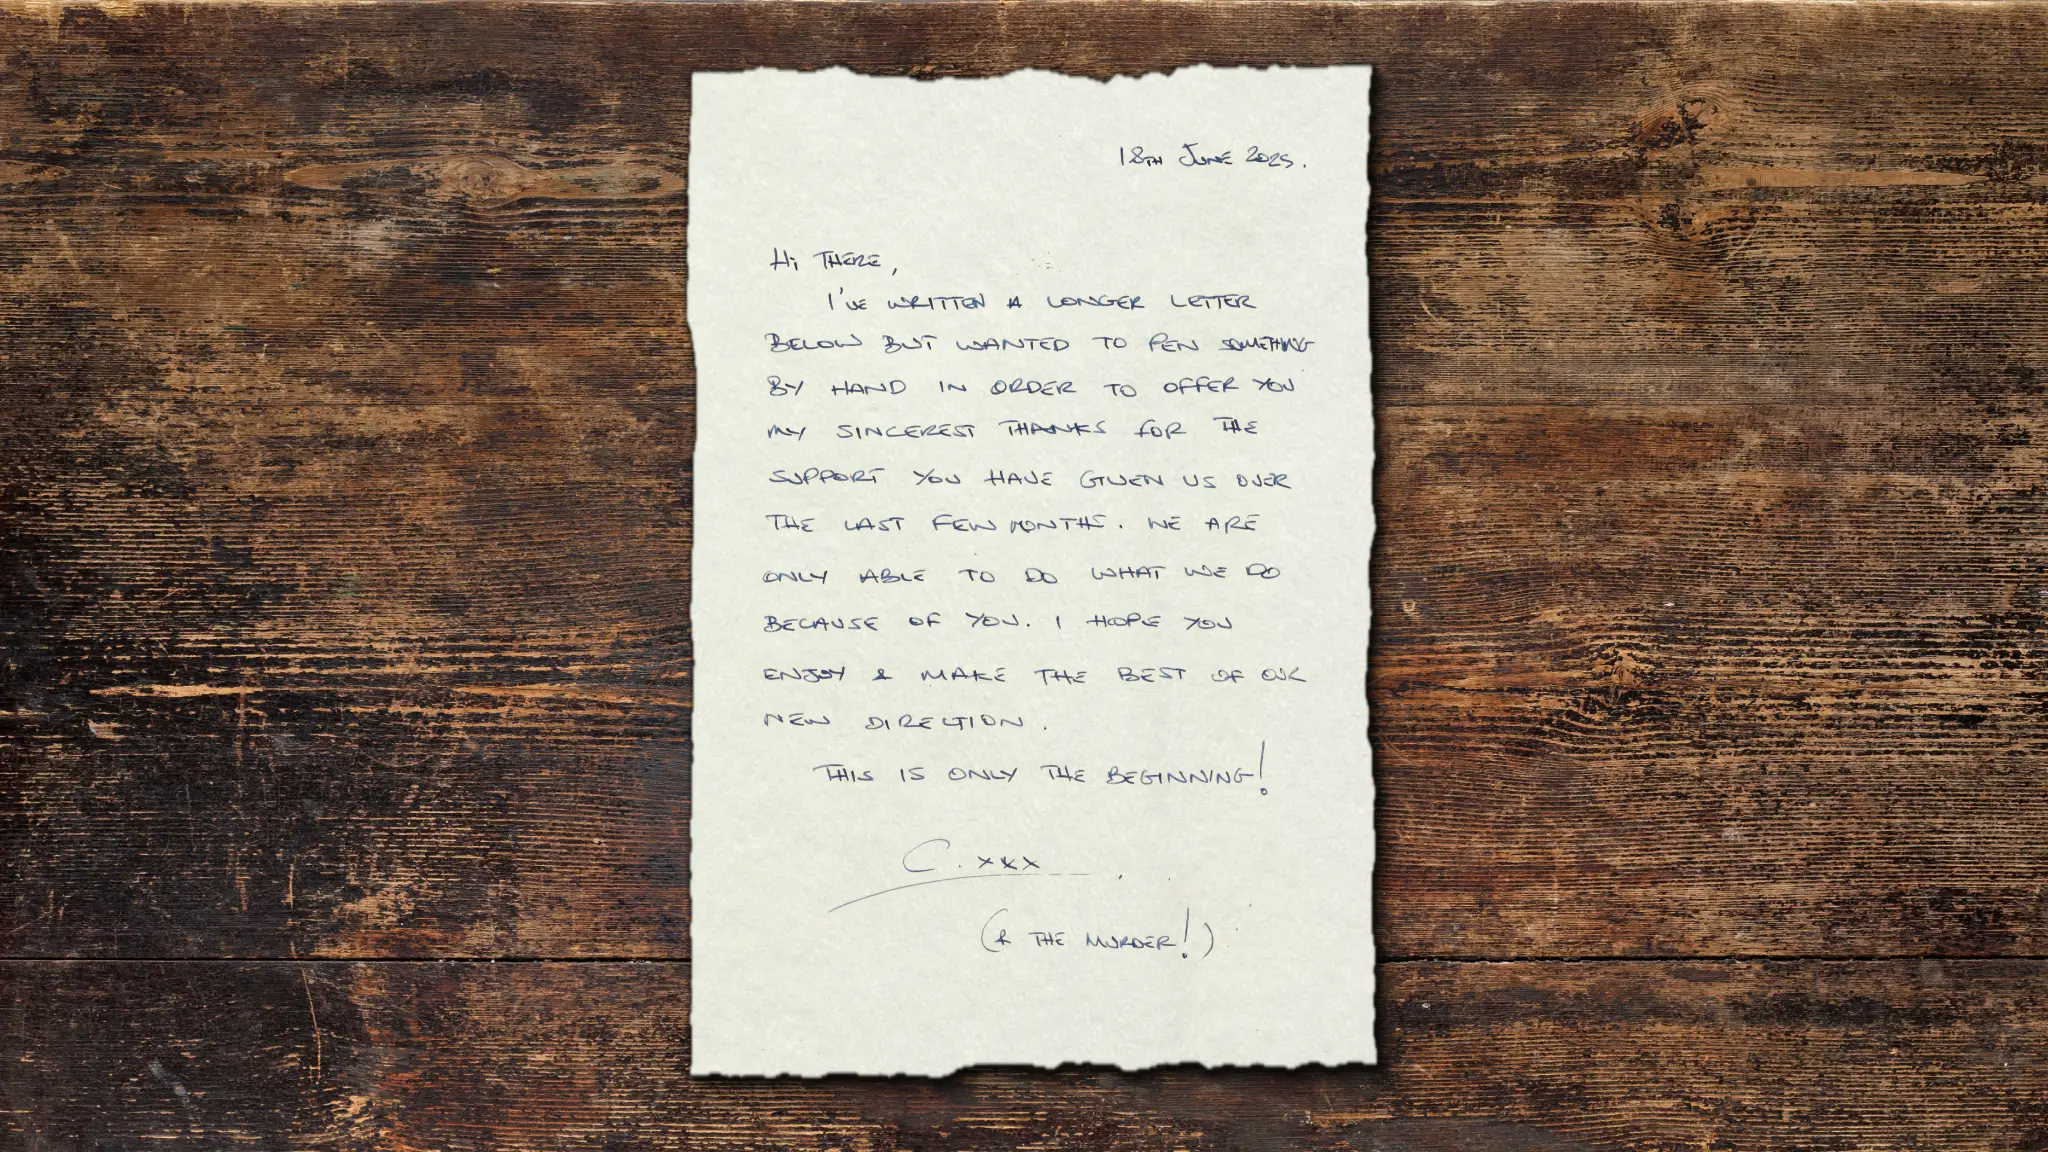 18TH JUNE 2025.
HI THERE,
I'VE WRITTEN A LONGER LETTER
BELOW BUT WANTED TO PEN SOMETHING
BY HAND IN ORDER TO OFFER YOU
MY SINCEREST THANKS FOR THE
SUPPORT YOU HAVE GIVEN US OVER
THE LAST FEW MONTHS. WE ARE
ONLY ABLE TO DO WHAT WE DO
BECAUSE OF YOU. I HOPE YOU
ENJOY & MAKE THE BEST OF OUR
NEW DIRECTION.
THIS IS ONLY THE BEGINNING!
C. xxx
(& THE MURDER!)